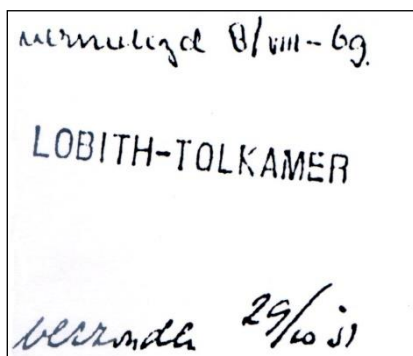 vernietigd 8/VIII-69.
LOBITH-TOLKAMER
verzonden 29/10